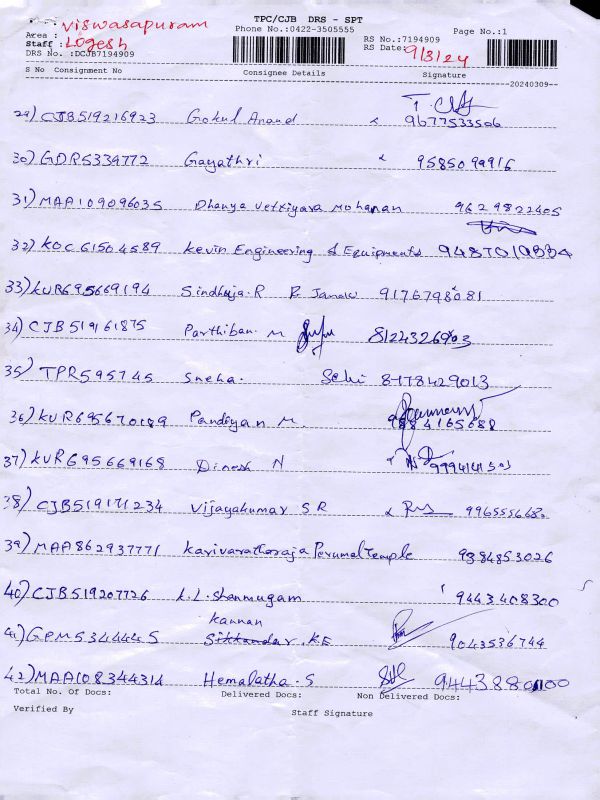 TPC/CJB DRS - SPT
Viswasapuram
Area :
Phone No.:0422-3505555
Page No.:1
Staff : Logesh
RS No.:7194909
DRS No.:DCJB7194909
RS Date: 9/3/24
S No Consignment No Consignee Details Signature
20240309
29) CJB519216923 Gokul Anand 9677533506
30) GDR5339772 Gayathri 9585099916
31) MAA109096035 Dhanya Vetriyara Mohanan 9629822405
32) KOC61504589 Kevin Engineering & Equipments 9487019334
33) KUR695669194 Sindhuja.R R. Janaki 9176798081
34) CJB519161875 Parthiban. M 8124326903
35) TPR595745 Sneha. Selvi 8778429013
36) KUR695670189 Pandiyan M. 9884165688
37) KUR695669168 Dinesh N
38) CJB519171234 Vijayakumar S R
39) MAA862937771 Karivaratharaja Perumal Temple 9384853026
40) CJB519207726 K.L. Shanmugam 9443408300
Kannan
41) GPM5344445 Sikkandar. KE 9043536744
42) MAA108344314 Hemalatha. S
Total No. Of Docs: Delivered Docs: Non Delivered Docs:
Verified By Staff Signature